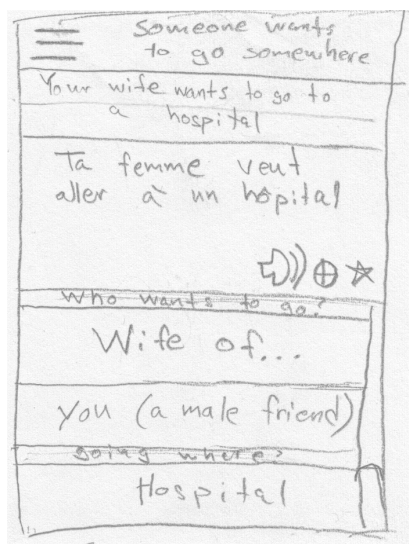 Someone wants
to go somewhere
Your wife wants to go to
a hospital
Ta femme veut
aller à un hôpital
Who wants to go?
Wife of...
you (a male friend)
going where?
Hospital